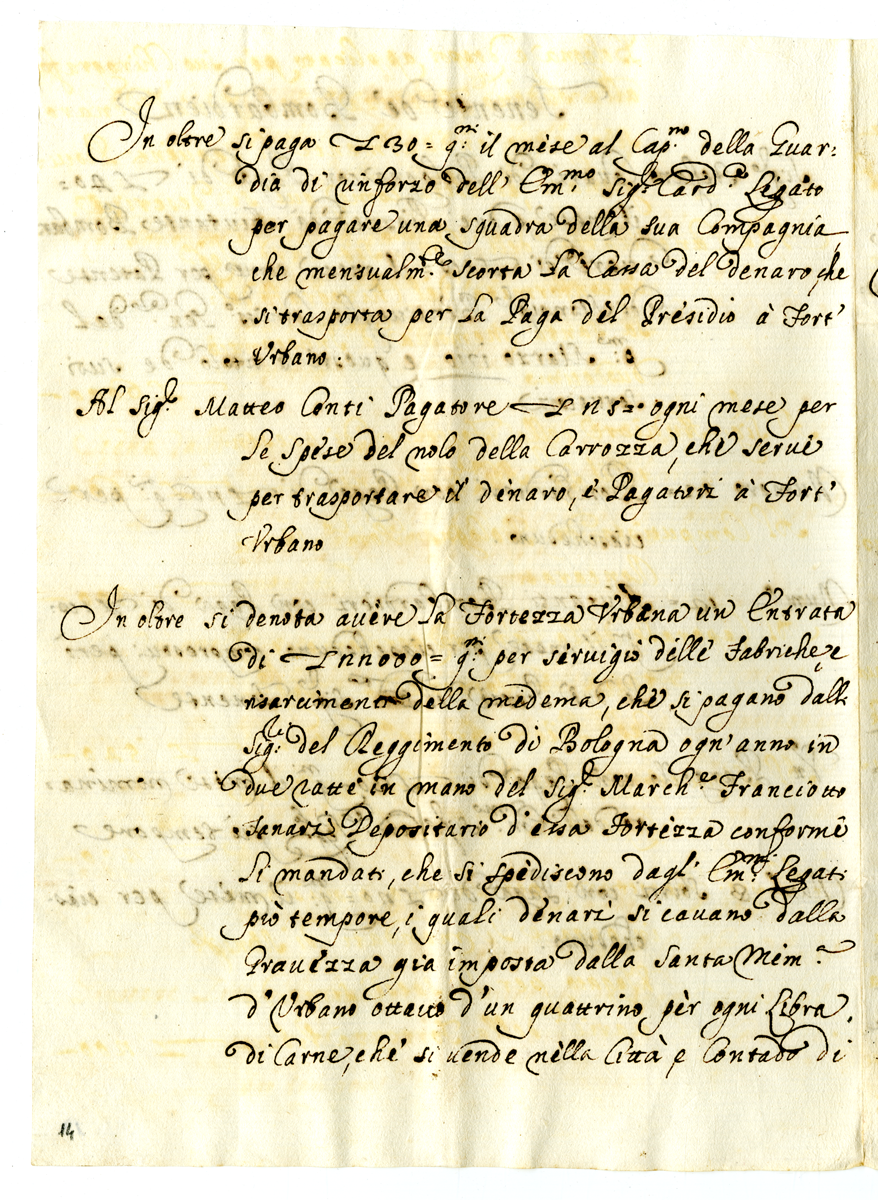 In oltre si paga £30= q.ni il mese al Cap.no della Guar:
dia di uinforzo dell' Em.mo Sig.r Card.e Legato
per pagare una squadra della sua Compagnia
che mensualm.te scorta la Cassa del denaro, che
si trasporta per la Paga del Presidio à Fort'
Vrbano:
Al Sig.r Matteo Conti Pagatore £ 115= ogni mese per
le spese del nolo della Carrozza, che serue
per trasportare il denaro, e Pagatori à Fort'
Vrbano
In oltre si denota auere la Fortezza Vrbana un Entrata
di £11000= q.ni per seruigio delle Fabriche, e
risarcimenti della medema, che si pagano dalli
Sig.ri del Reggimento di Bologna ogn' anno in
due ratte in mano del Sig.r March.e Franciotto
Fanari Depositario d'essa Fortezza conforme
li mandati, che si spediscono dagl' Em.mi Legati
piò tempore, i quali denari si cauano dalla
Grauezza gia imposta dalla Santa Mem.a
d' Vrbano ottauo d'un quattrino per ogni Libra
di Carne, che si uende nella Città e Contado di
14